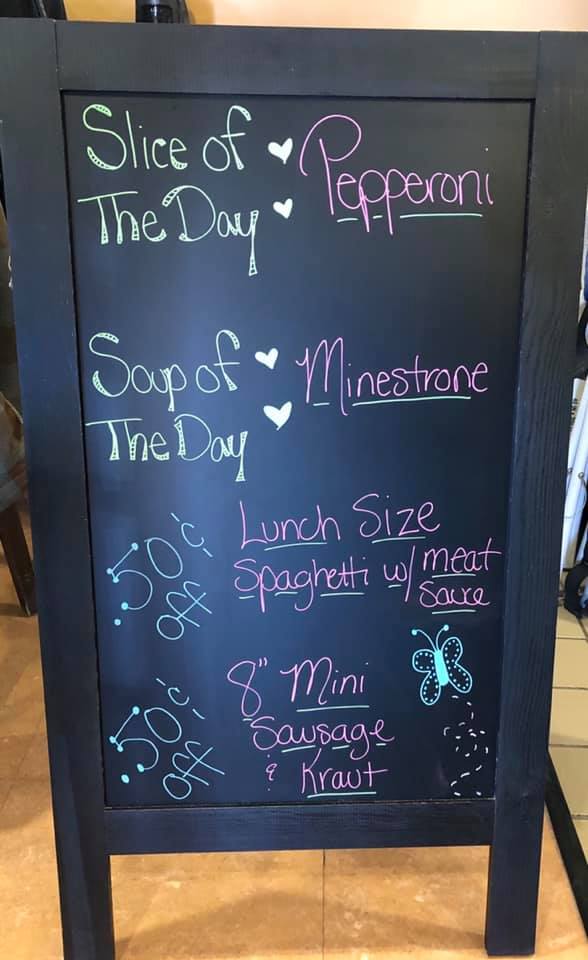 Slice of
The Day
Pepperoni
Soup of
The Day
Minestrone
50¢
off
Lunch Size
Spaghetti w/ meat
Sauce
50¢
off
8" Mini
Sausage
& Kraut